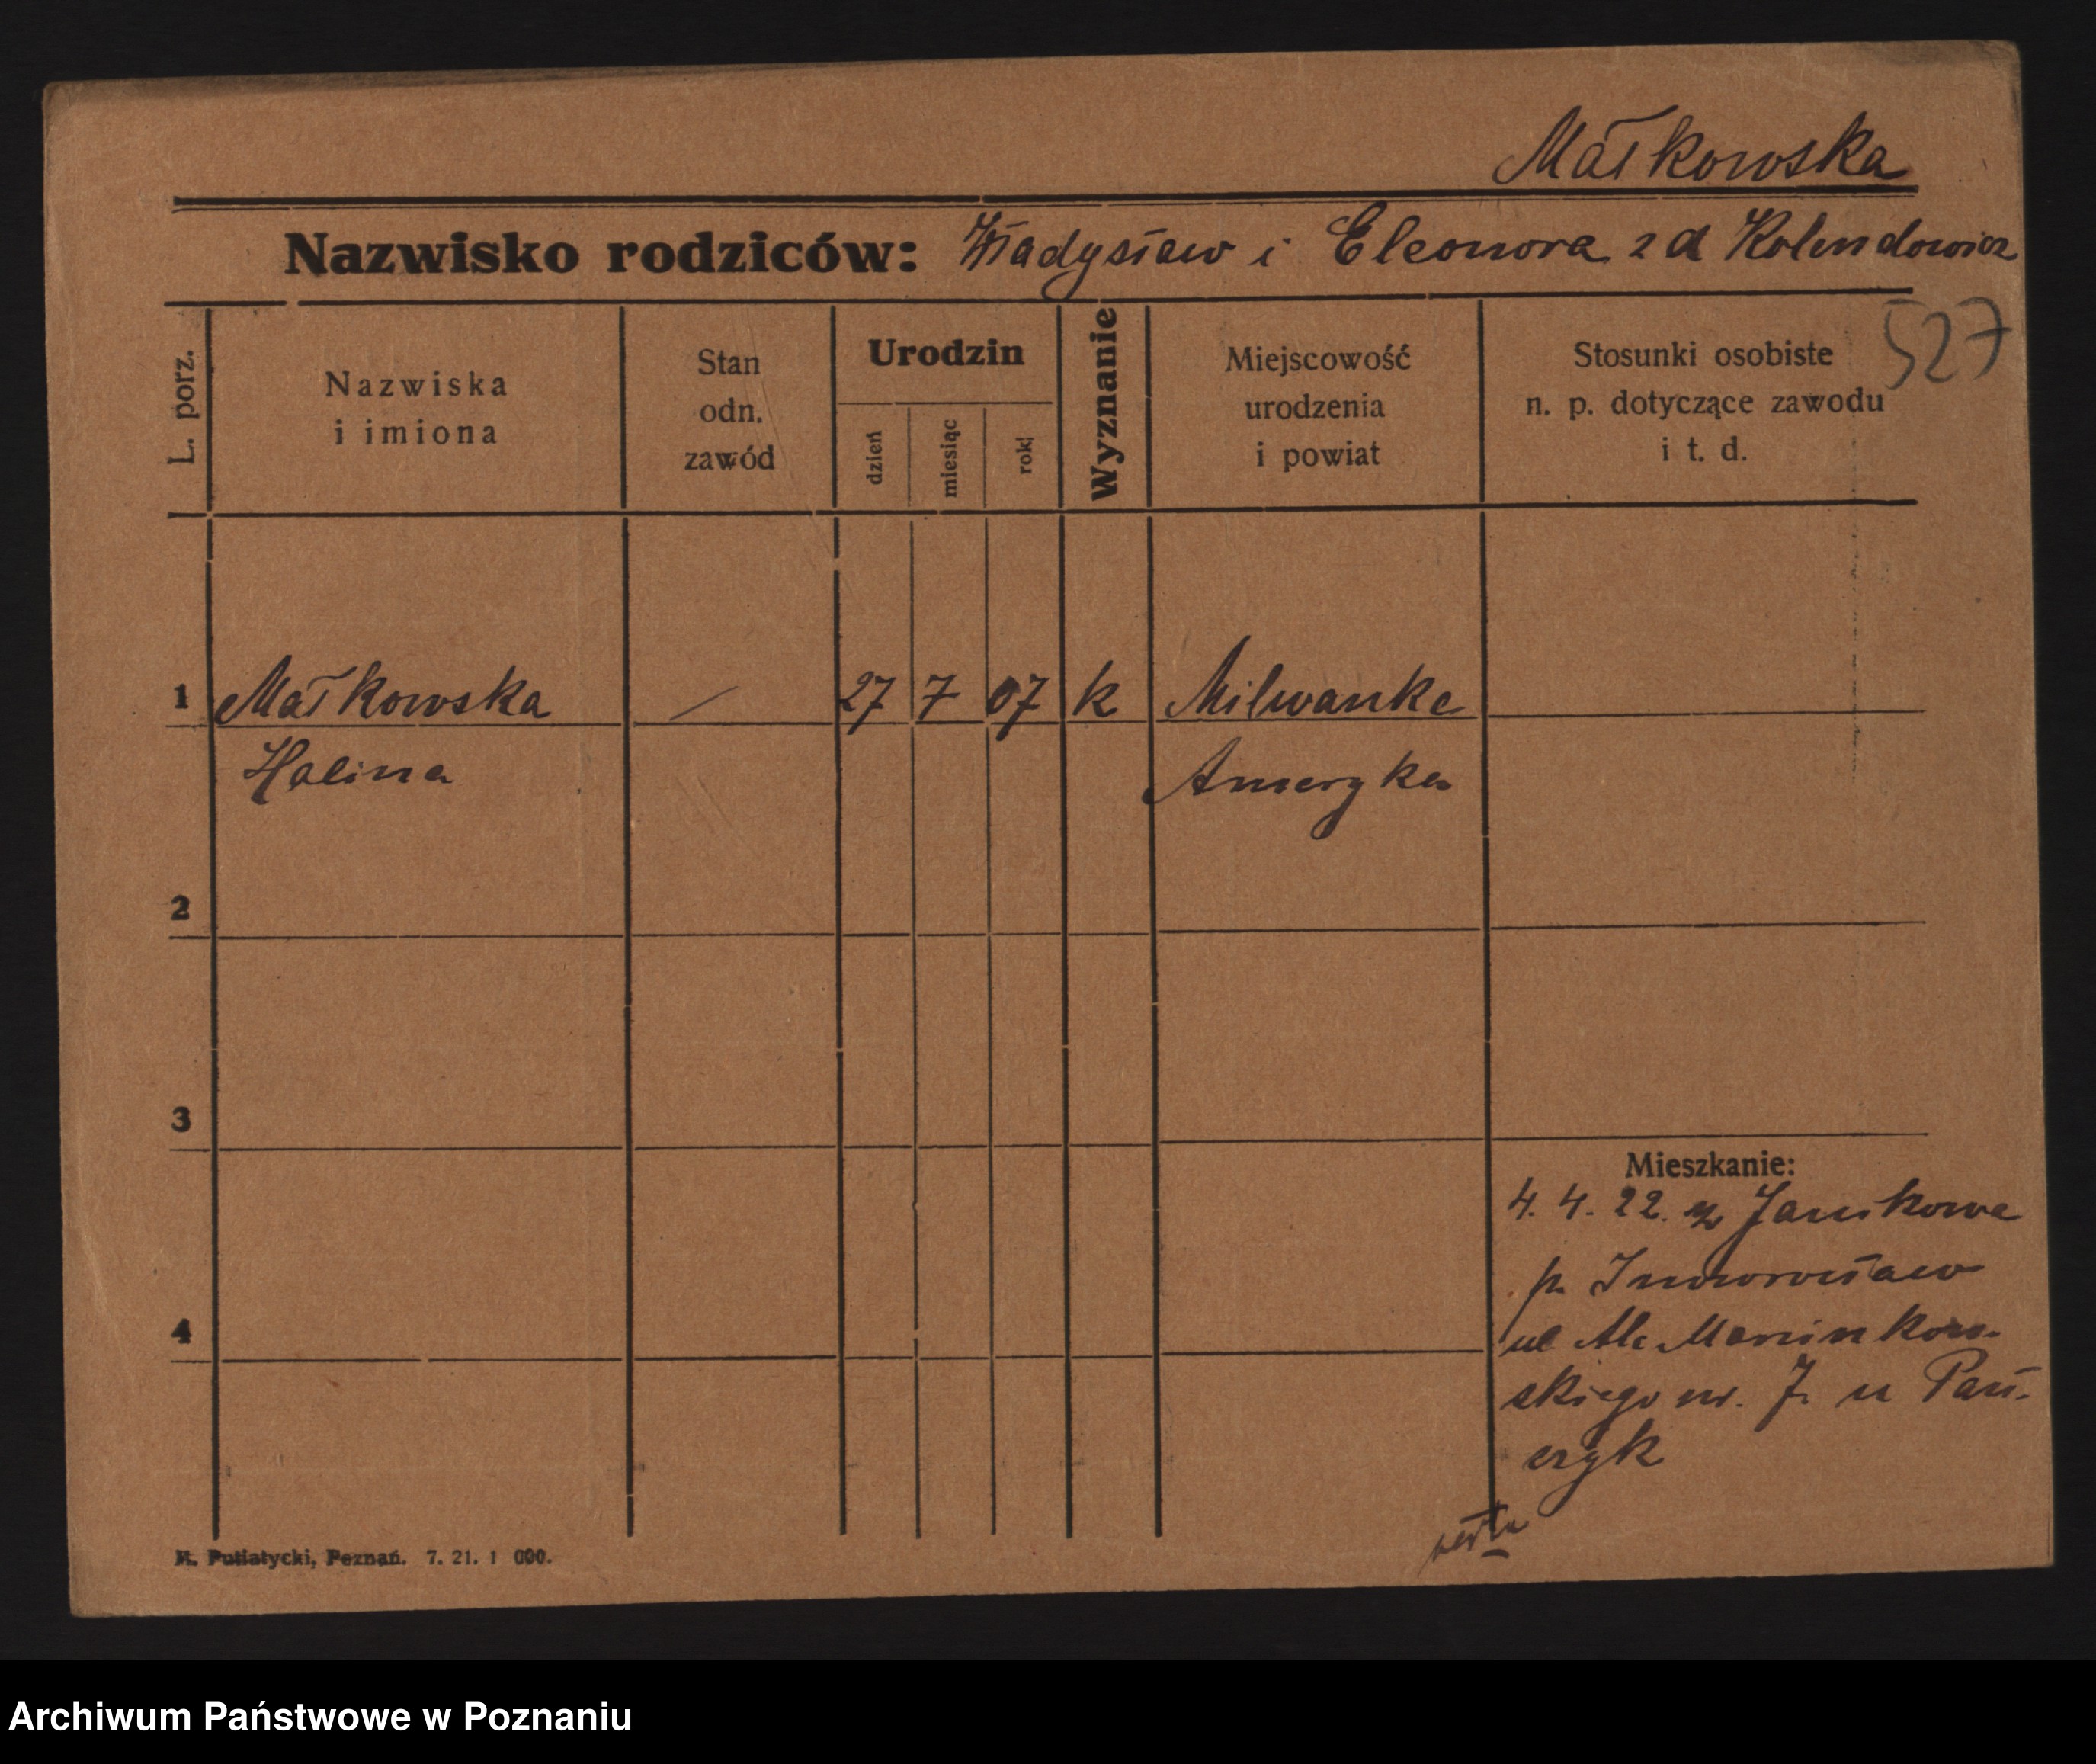 Małkowska
Nazwisko rodziców: Władysław i Eleonora z d Kolendowicz
527
L. porz.
Nazwiska
i imiona
Stan
odn.
zawód
Urodzin
dzień
miesiąc
rok
Wyznanie
Miejscowość
urodzenia
i powiat
Stosunki osobiste
n. p. dotyczące zawodu
i t. d.
1 Małkowska 27 7 07 k Milwauke
Halina Ameryka
2
3
4
Mieszkanie:
4. 4. 22. z Jankowa
p. Inowrocław
ul Al. Marcinkow-
skiego nr. 7 u Pań-
czyk
H. Putiatycki, Poznań. 7. 21. 1 000.
Archiwum Państwowe w Poznaniu